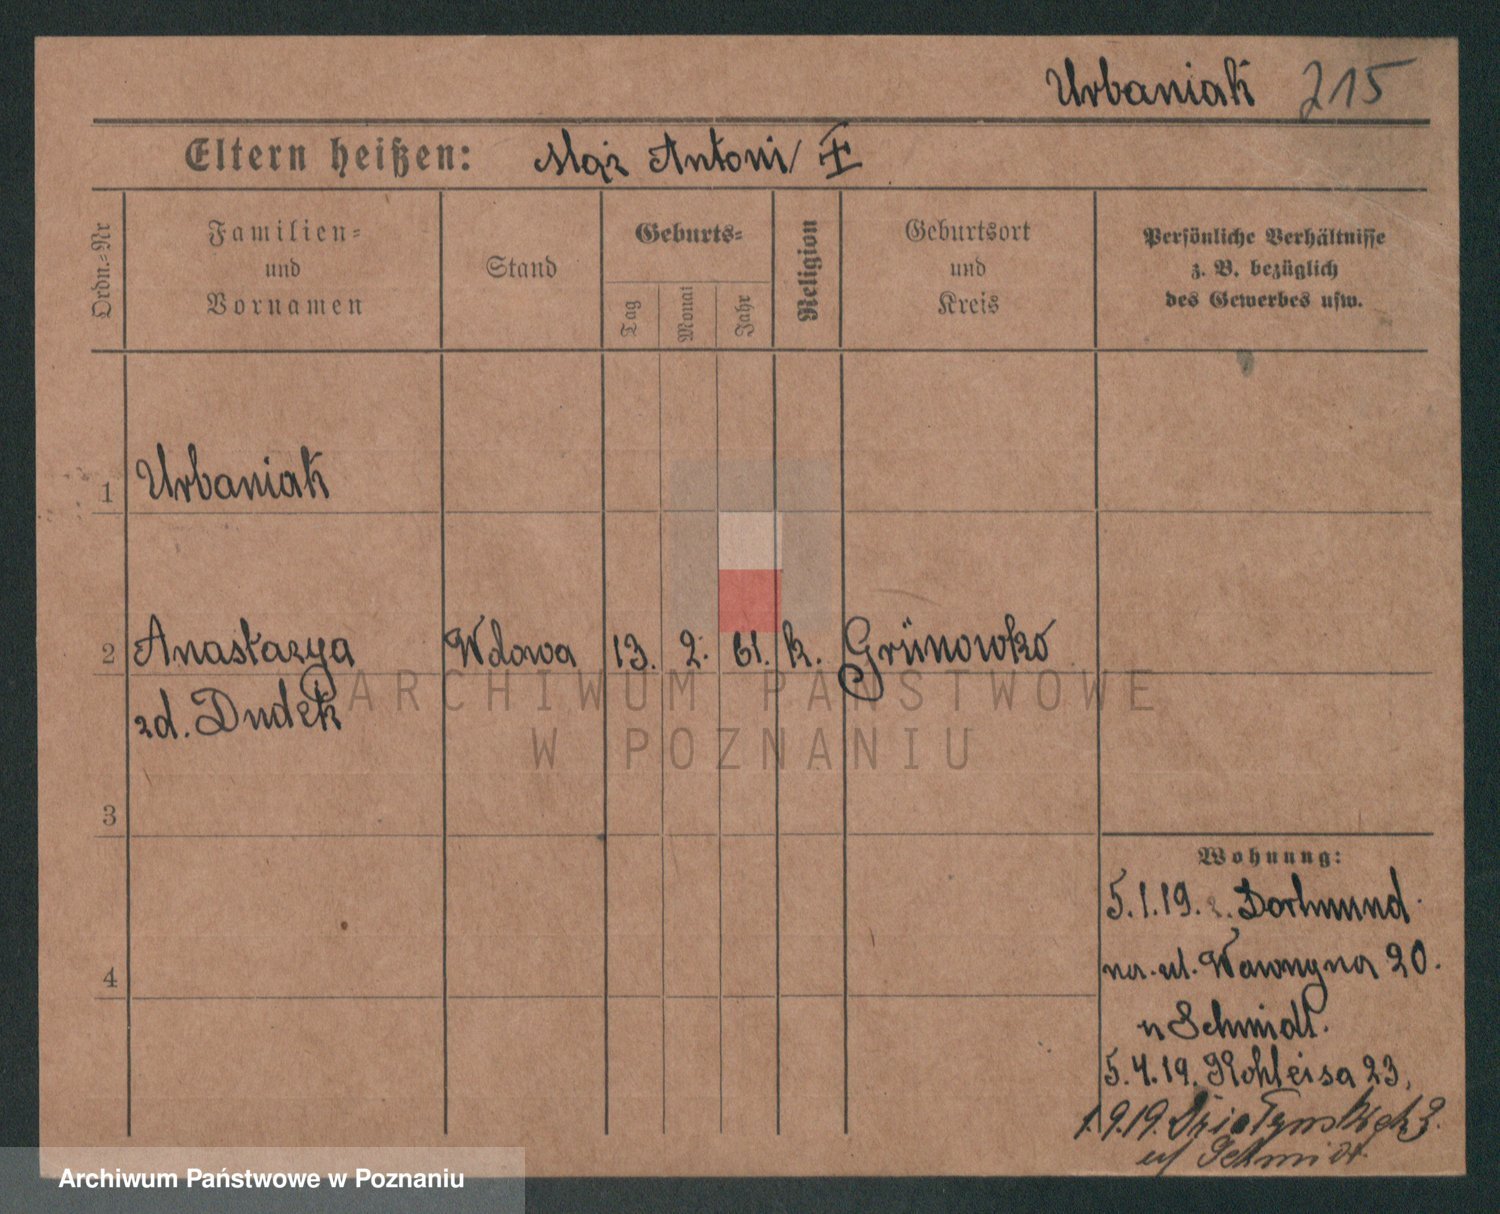 Urbaniak 215
Eltern heißen: Mąż Antoni
Ordn.=Nr
Familien=
und
Vornamen
Stand
Geburts=
Tag
Monat
Jahr
Religion
Geburtsort
und
Kreis
Persönliche Verhältnisse
z. B. bezüglich
des Gewerbes usw.
1 Urbaniak
2 Anastazya Wdowa 13. 2. 61. k. Grünowko
zd. Dudek
3
4
Wohnung:
5.1.19. z. Dortmund
na ul. Wawrzyna 20.
u Schmidt.
5.4.19. Kohleisa 23,
1.9.19. Działyńskich 3.
u/ Schmidt
ARCHIWUM PAŃSTWOWE
W POZNANIU
Archiwum Państwowe w Poznaniu